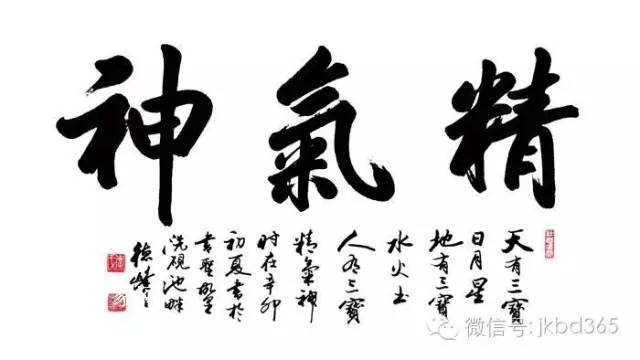 精氣神
天有三寶
日月星
地有三寶
水火土
人有三寶
精氣神
时在辛卯
初夏書於
書聖故里
洗硯池畔
微信号: jkbd365